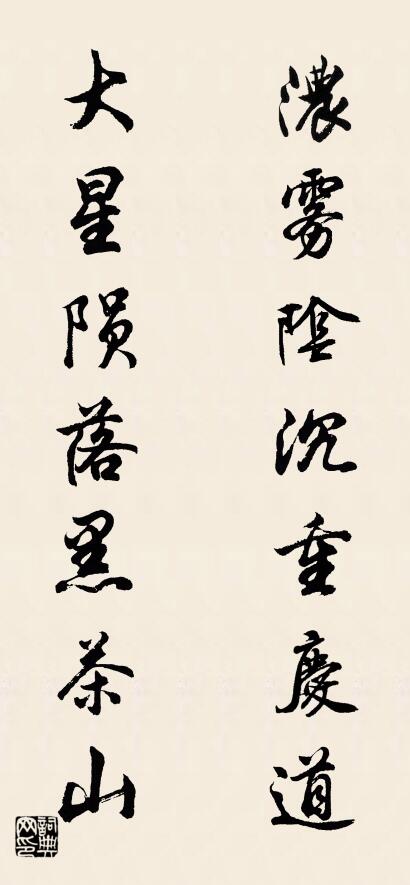 濃雾陰沉重慶道
大星陨落黑茶山
詞典网印